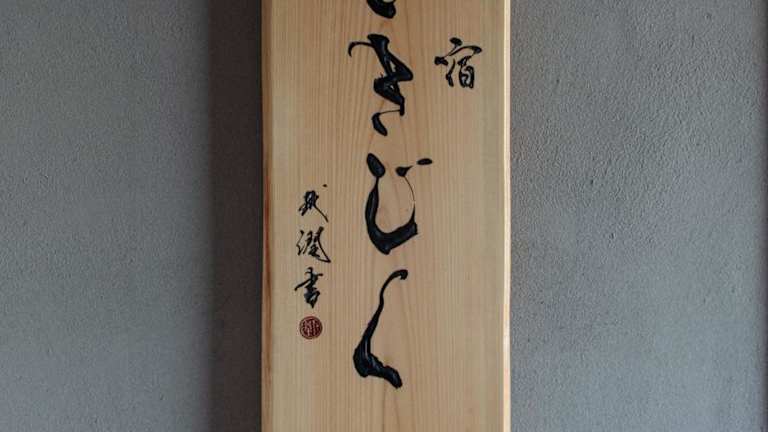 宿
きじく
潤書